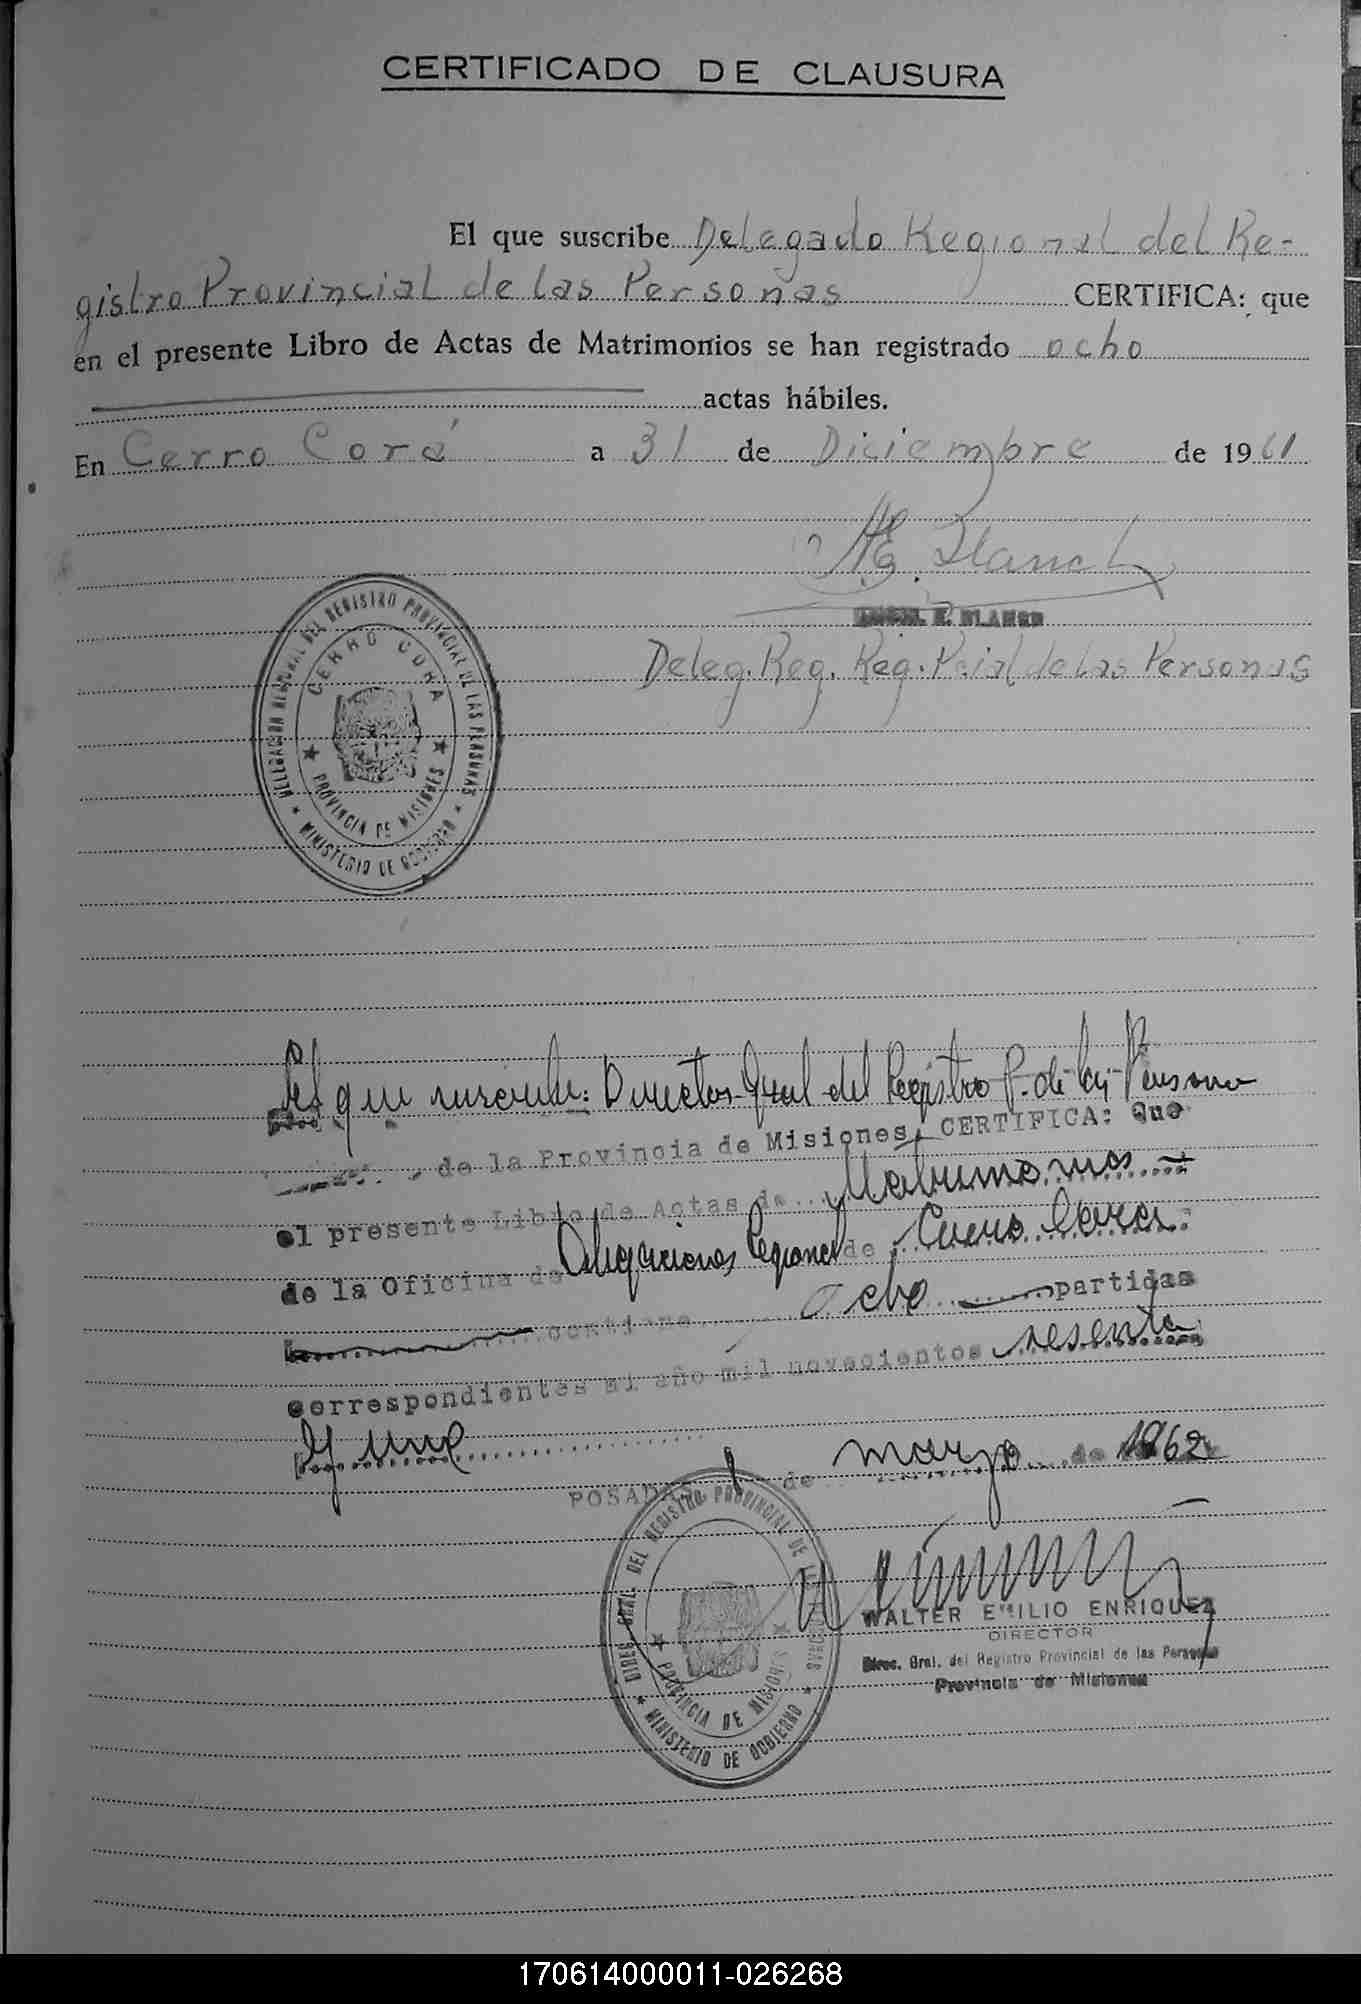 CERTIFICADO DE CLAUSURA
El que suscribe Delegado Regional del Re-
gistro Provincial de las Personas CERTIFICA: que
en el presente Libro de Actas de Matrimonios se han registrado ocho
actas hábiles.
En Cerro Corá a 31 de Diciembre de 1961
E. BLANCO
Deleg. Reg. Reg. Pcial de las Personas
DELEGACION REGIONAL DEL REGISTRO PROVINCIAL DE LAS PERSONAS
CERRO CORA
PROVINCIA DE MISIONES
MINISTERIO DE GOBIERNO
El que suscribe: Director Gral del Registro P. de las Personas
de la Provincia de Misiones, CERTIFICA: Que
el presente Libro de Actas de Matrimonios
de la Oficina de Delegaciones Regional de Cerro Cora
contiene ocho partidas
correspondientes al año mil novecientos sesenta
y uno
POSADAS, de marzo de 1962
DIREC. GRAL. DEL REGISTRO PROVINCIAL DE LAS PERSONAS
PROVINCIA DE MISIONES
MINISTERIO DE GOBIERNO
WALTER EMILIO ENRIQUEZ
DIRECTOR
Direc. Gral. del Registro Provincial de las Personas
Provincia de Misiones
170614000011-026268